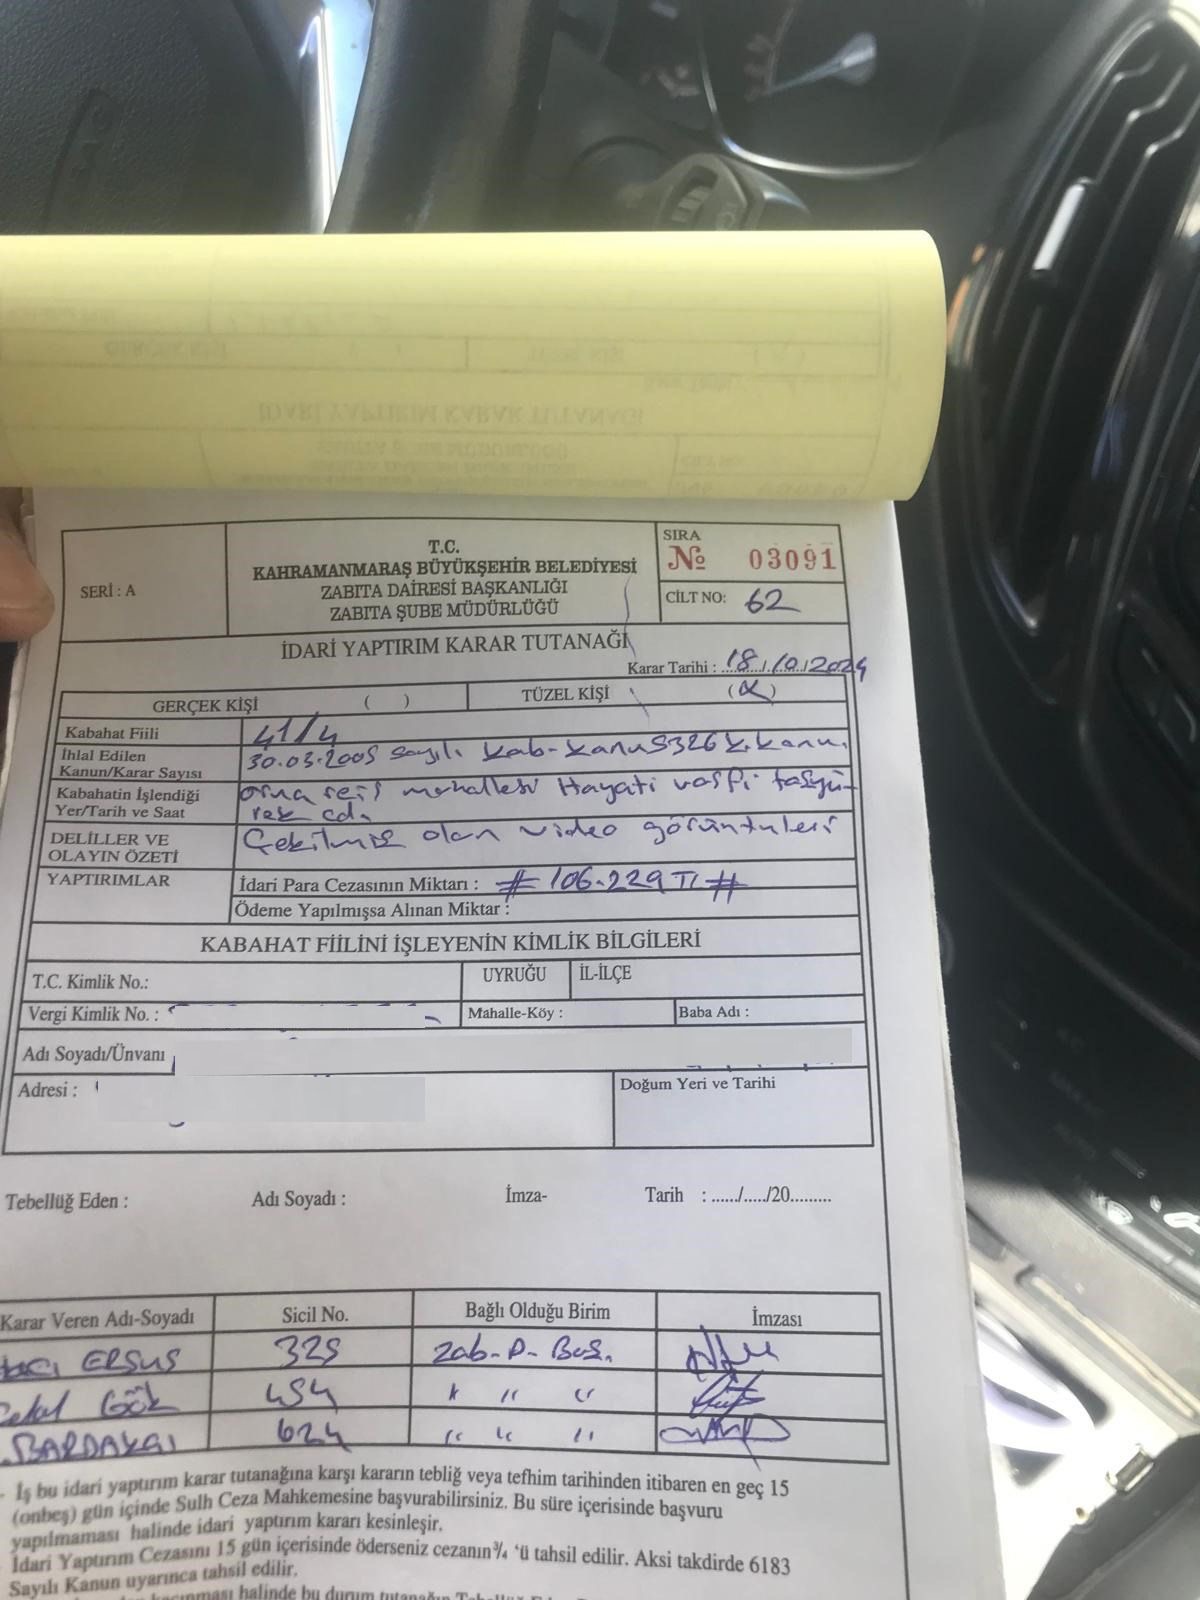 SERİ : A
T.C.
KAHRAMANMARAŞ BÜYÜKŞEHİR BELEDİYESİ
ZABITA DAİRESİ BAŞKANLIĞI
ZABITA ŞUBE MÜDÜRLÜĞÜ
SIRA
№ 03091
CİLT NO: 62
İDARİ YAPTIRIM KARAR TUTANAĞI
Karar Tarihi : 18/10/2024
GERÇEK KİŞİ ( ) TÜZEL KİŞİ (X)
Kabahat Fiili 41/4
İhlal Edilen
Kanun/Karar Sayısı 30.03.2005 sayılı kab-kanu 5326 K.kanu.
Kabahatin İşlendiği
Yer/Tarih ve Saat
mahallesi Hayati vasfi taşyü-
rek cd.
DELİLLER VE
OLAYIN ÖZETİ Çekilmiş olan video görüntüleri
YAPTIRIMLAR
İdari Para Cezasının Miktarı : # 106.229 TL #
Ödeme Yapılmışsa Alınan Miktar :
KABAHAT FİİLİNİ İŞLEYENİN KİMLİK BİLGİLERİ
T.C. Kimlik No.: UYRUĞU İL-İLÇE
Vergi Kimlik No. : Mahalle-Köy : Baba Adı :
Adı Soyadı/Ünvanı
Adresi : Doğum Yeri ve Tarihi
Tebellüğ Eden : Adı Soyadı : İmza- Tarih : ....../...../20.........
Karar Veren Adı-Soyadı Sicil No. Bağlı Olduğu Birim İmzası
ERSUS 325 Zab-D-Baş.
Gök 454 " " "
BARDAKÇI 624 " " "
- İş bu idari yaptırım karar tutanağına karşı kararın tebliğ veya tefhim tarihinden itibaren en geç 15
(onbeş) gün içinde Sulh Ceza Mahkemesine başvurabilirsiniz. Bu süre içerisinde başvuru
yapılmaması halinde idari yaptırım kararı kesinleşir.
İdari Yaptırım Cezasını 15 gün içerisinde öderseniz cezanın ¾ 'ü tahsil edilir. Aksi takdirde 6183
Sayılı Kanun uyarınca tahsil edilir.
halinde bu durum tutanağın